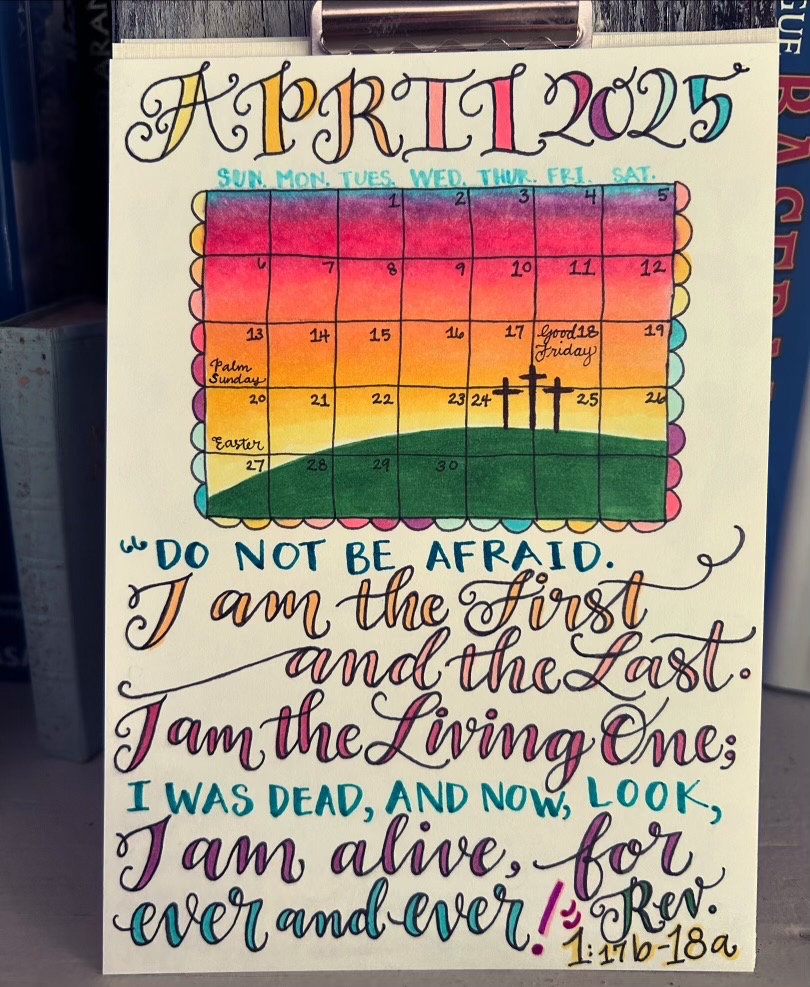 APRIL 2025
SUN. MON. TUES. WED. THUR. FRI. SAT.
1 2 3 4 5
6 7 8 9 10 11 12
13 14 15 16 17 18 19
Palm Sunday
Good Friday
20 21 22 23 24 25 26
Easter
27 28 29 30
"DO NOT BE AFRAID.
I am the First
and the Last.
I am the Living One;
I WAS DEAD, AND NOW, LOOK,
I am alive, for
ever and ever!"
Rev.
1:17b-18a